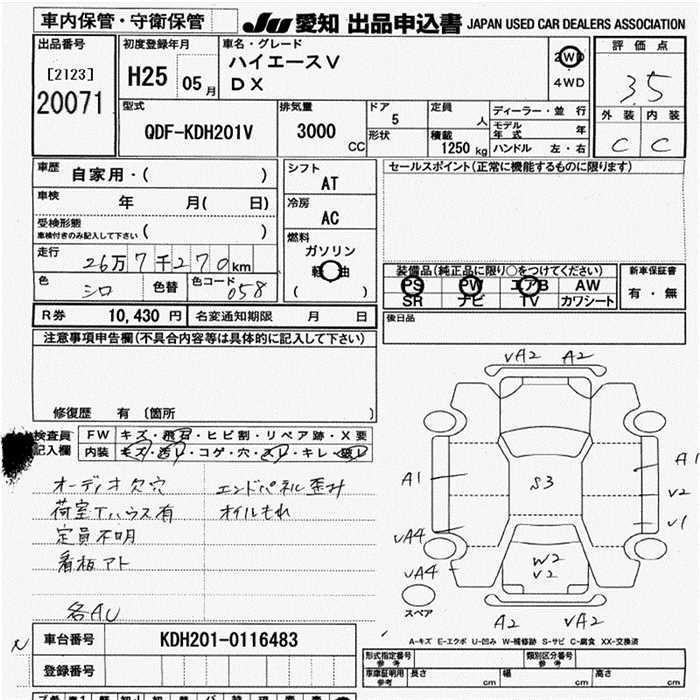 車内保管・守衛保管
JU 愛知 出品申込書 JAPAN USED CAR DEALERS ASSOCIATION
出品番号
[2123]
20071
初度登録年月
H25 05月
車名・グレード
ハイエースV
DX
2WD
4WD
評価点
3.5
外装 内装
C C
型式
QDF-KDH201V
排気量
3000 CC
ドア
5
形状
定員
人
積載
1250 kg
ディーラー・並行
モデル年式 年
ハンドル 左・右
車歴
自家用・( )
車検
年 月( 日)
受検形態
車検付きのみ記入して下さい ( )
走行
26万7千270km
色
シロ
色替
色コード
058
シフト
AT
冷房
AC
燃料
ガソリン
軽油
( )
セールスポイント(正常に機能するものに限ります)
装備品(純正品に限り○をつけてください)
PS PW エアB AW
SR ナビ TV カワシート
新車保証書
有・無
後日品
R券 10,430 円 名変通知期限 月 日
注意事項申告欄(不具合内容等は具体的に記入して下さい)
修復歴 有 〔箇所 〕
検査員記入欄
FW キズ・飛石・ヒビ割・リペア跡・X要
内装 キズ・汚レ・コゲ・穴・スレ・キレ・破レ
オーディオ欠穴 エンドパネル歪み
荷室Tハウス有 オイルもれ
定員不明
看板アト
各AU
VA2 A2
A1 A1
S3
V2
V1
VA4
VA4
W2
V2
スペア
A2 VA2
A-キズ E-エクボ U-凹み W-補修跡 S-サビ C-腐食 XX-交換済
N
車台番号 KDH201-0116483
登録番号
形式指定番号 参考
類別区分番号 参考
車庫証明用 参考 長さ cm 幅 cm 高さ cm